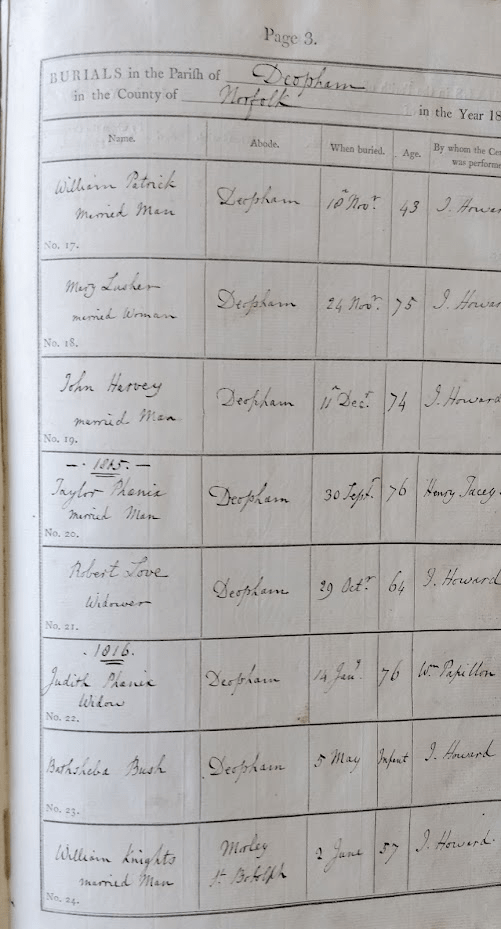 Page 3.
BURIALS in the Parish of Deopham
in the County of Norfolk in the Year 18
Name. Abode. When buried. Age. By whom the Cer
was performe
William Patrick
Married Man
Deopham 18 Novr. 43 J. Howar
No. 17.
Mary Lasher
married Woman
Deopham 24 Novr. 75 J. Howar
No. 18.
John Harvey
married Man
Deopham 11 Decr. 74 J. Howard
No. 19.
- 1815. -
Taylor Phenix
married Man
Deopham 30 Septr. 76 Henry Tacey.
No. 20.
Robert Love
Widower
Deopham 29 Octr. 64 J. Howard
No. 21.
. 1816.
Judith Phenix
Widow
Deopham 14 Jany 76 Wm Papillon
No. 22.
Bathsheba Bush Deopham 5 May Infant J. Howard
No. 23.
William Knights
married Man
Morley
St Botolph
2 June 57 J. Howard.
No. 24.